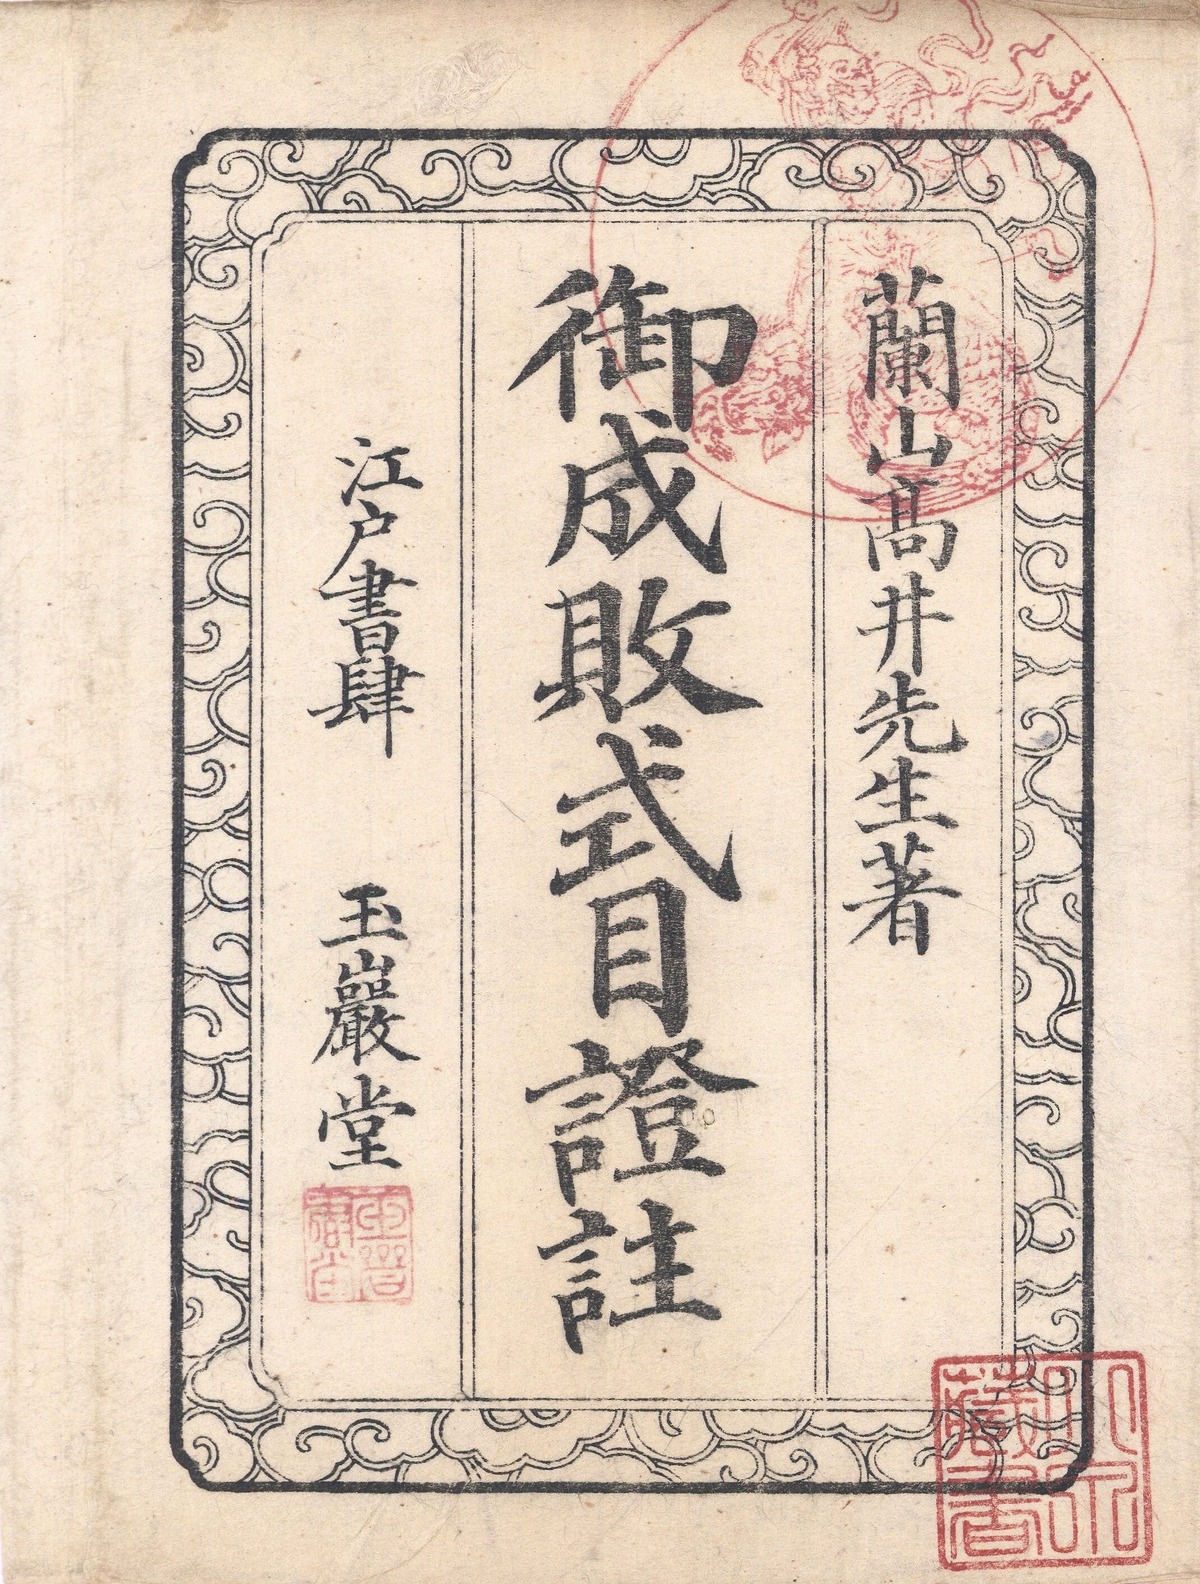 蘭山髙井先生著
御成敗式目證註
江戸書肆 玉巖堂